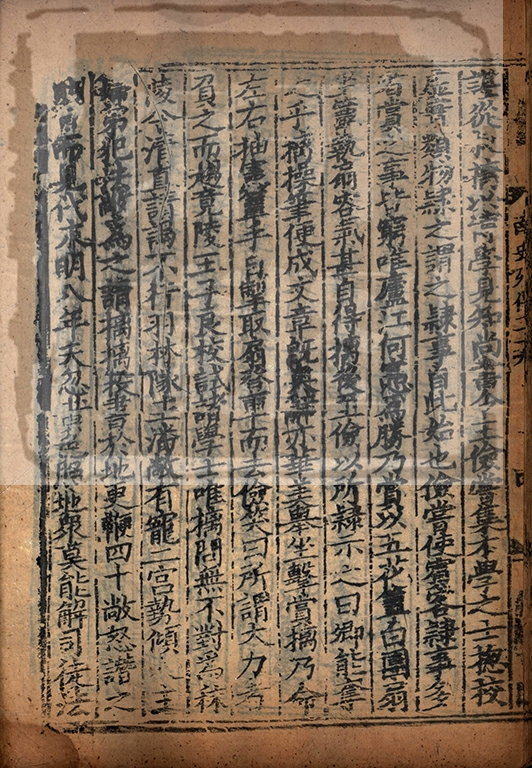 諶從叔摛以博學見知尚書令王儉嘗集才學之士捴校
虛實類物隸之謂之隸事自此始也儉嘗使賓客隸事多
者賞之事皆窮唯廬江何憲爲勝乃賞以五花簟白團扇
坐簟執扇容氣甚自得摛後至儉以所隸示之曰卿能奪
之乎摛操筆便成文章既奧辭亦華美舉坐擊賞摛乃命
左右抽憲簟手自掣取扇登車而去儉笑曰所謂大力者
負之而趨竟陵王子良校試諸學士唯摛問無不對爲秣
陵令清直請謁不行羽林隊主潘敞有寵二宮勢傾人主
婦弟犯法敞爲之請摛摛投書於地更鞭四十敞怒譖之
明日而見代永明八年天忽黃色照地眾莫能解司徒法